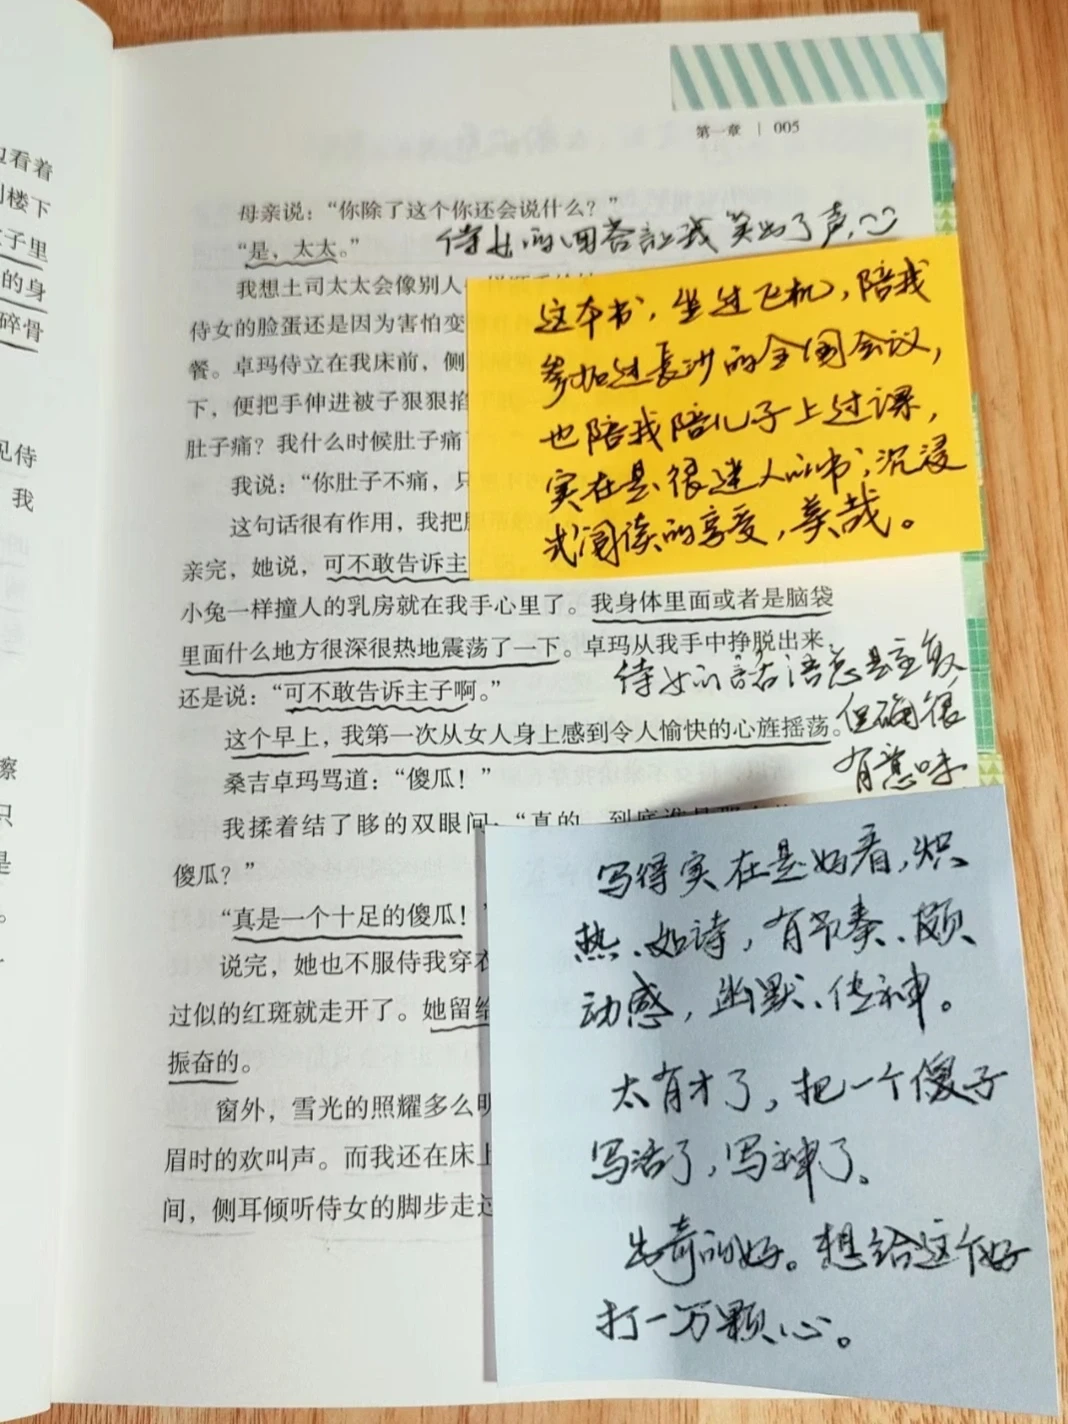 第一章 | 005
边看着
楼下
子里
的身
碎骨
见侍
我
擦
只
是
。
母亲说：“你除了这个你还会说什么？”
“是，太太。”
侍女的回答让我笑出了声
我想土司太太会像别人
侍女的脸蛋还是因为害怕变
餐。卓玛侍立在我床前，侧
下，便把手伸进被子狠狠掐
肚子痛？我什么时候肚子痛
我说：“你肚子不痛，只
这句话很有作用，我把
亲完，她说，可不敢告诉主
小兔一样撞人的乳房就在我手心里了。我身体里面或者是脑袋
里面什么地方很深很热地震荡了一下。卓玛从我手中挣脱出来，
还是说：“可不敢告诉主子啊。”
这个早上，我第一次从女人身上感到令人愉快的心旌摇荡。
桑吉卓玛骂道：“傻瓜！”
我揉着结了眵的双眼问：“真的，到底谁是那个
傻瓜？”
“真是一个十足的傻瓜！”
说完，她也不服侍我穿衣
过似的红斑就走开了。她留给
振奋的。
窗外，雪光的照耀多么明
眉时的欢叫声。而我还在床上
间，侧耳倾听侍女的脚步走过
这本书，坐过飞机，陪我
参加过长沙的全国会议，
也陪我陪儿子上过课，
实在是很迷人的书，沉浸
式阅读的享受，美哉。
侍女的話语总是重复，
但确很
有意味
写得实在是好看，炽
热、如诗，有节奏、颇
动感，幽默、传神。
太有才了，把一个傻子
写活了，写神了。
出奇的好。想给这个好
打一万颗心。